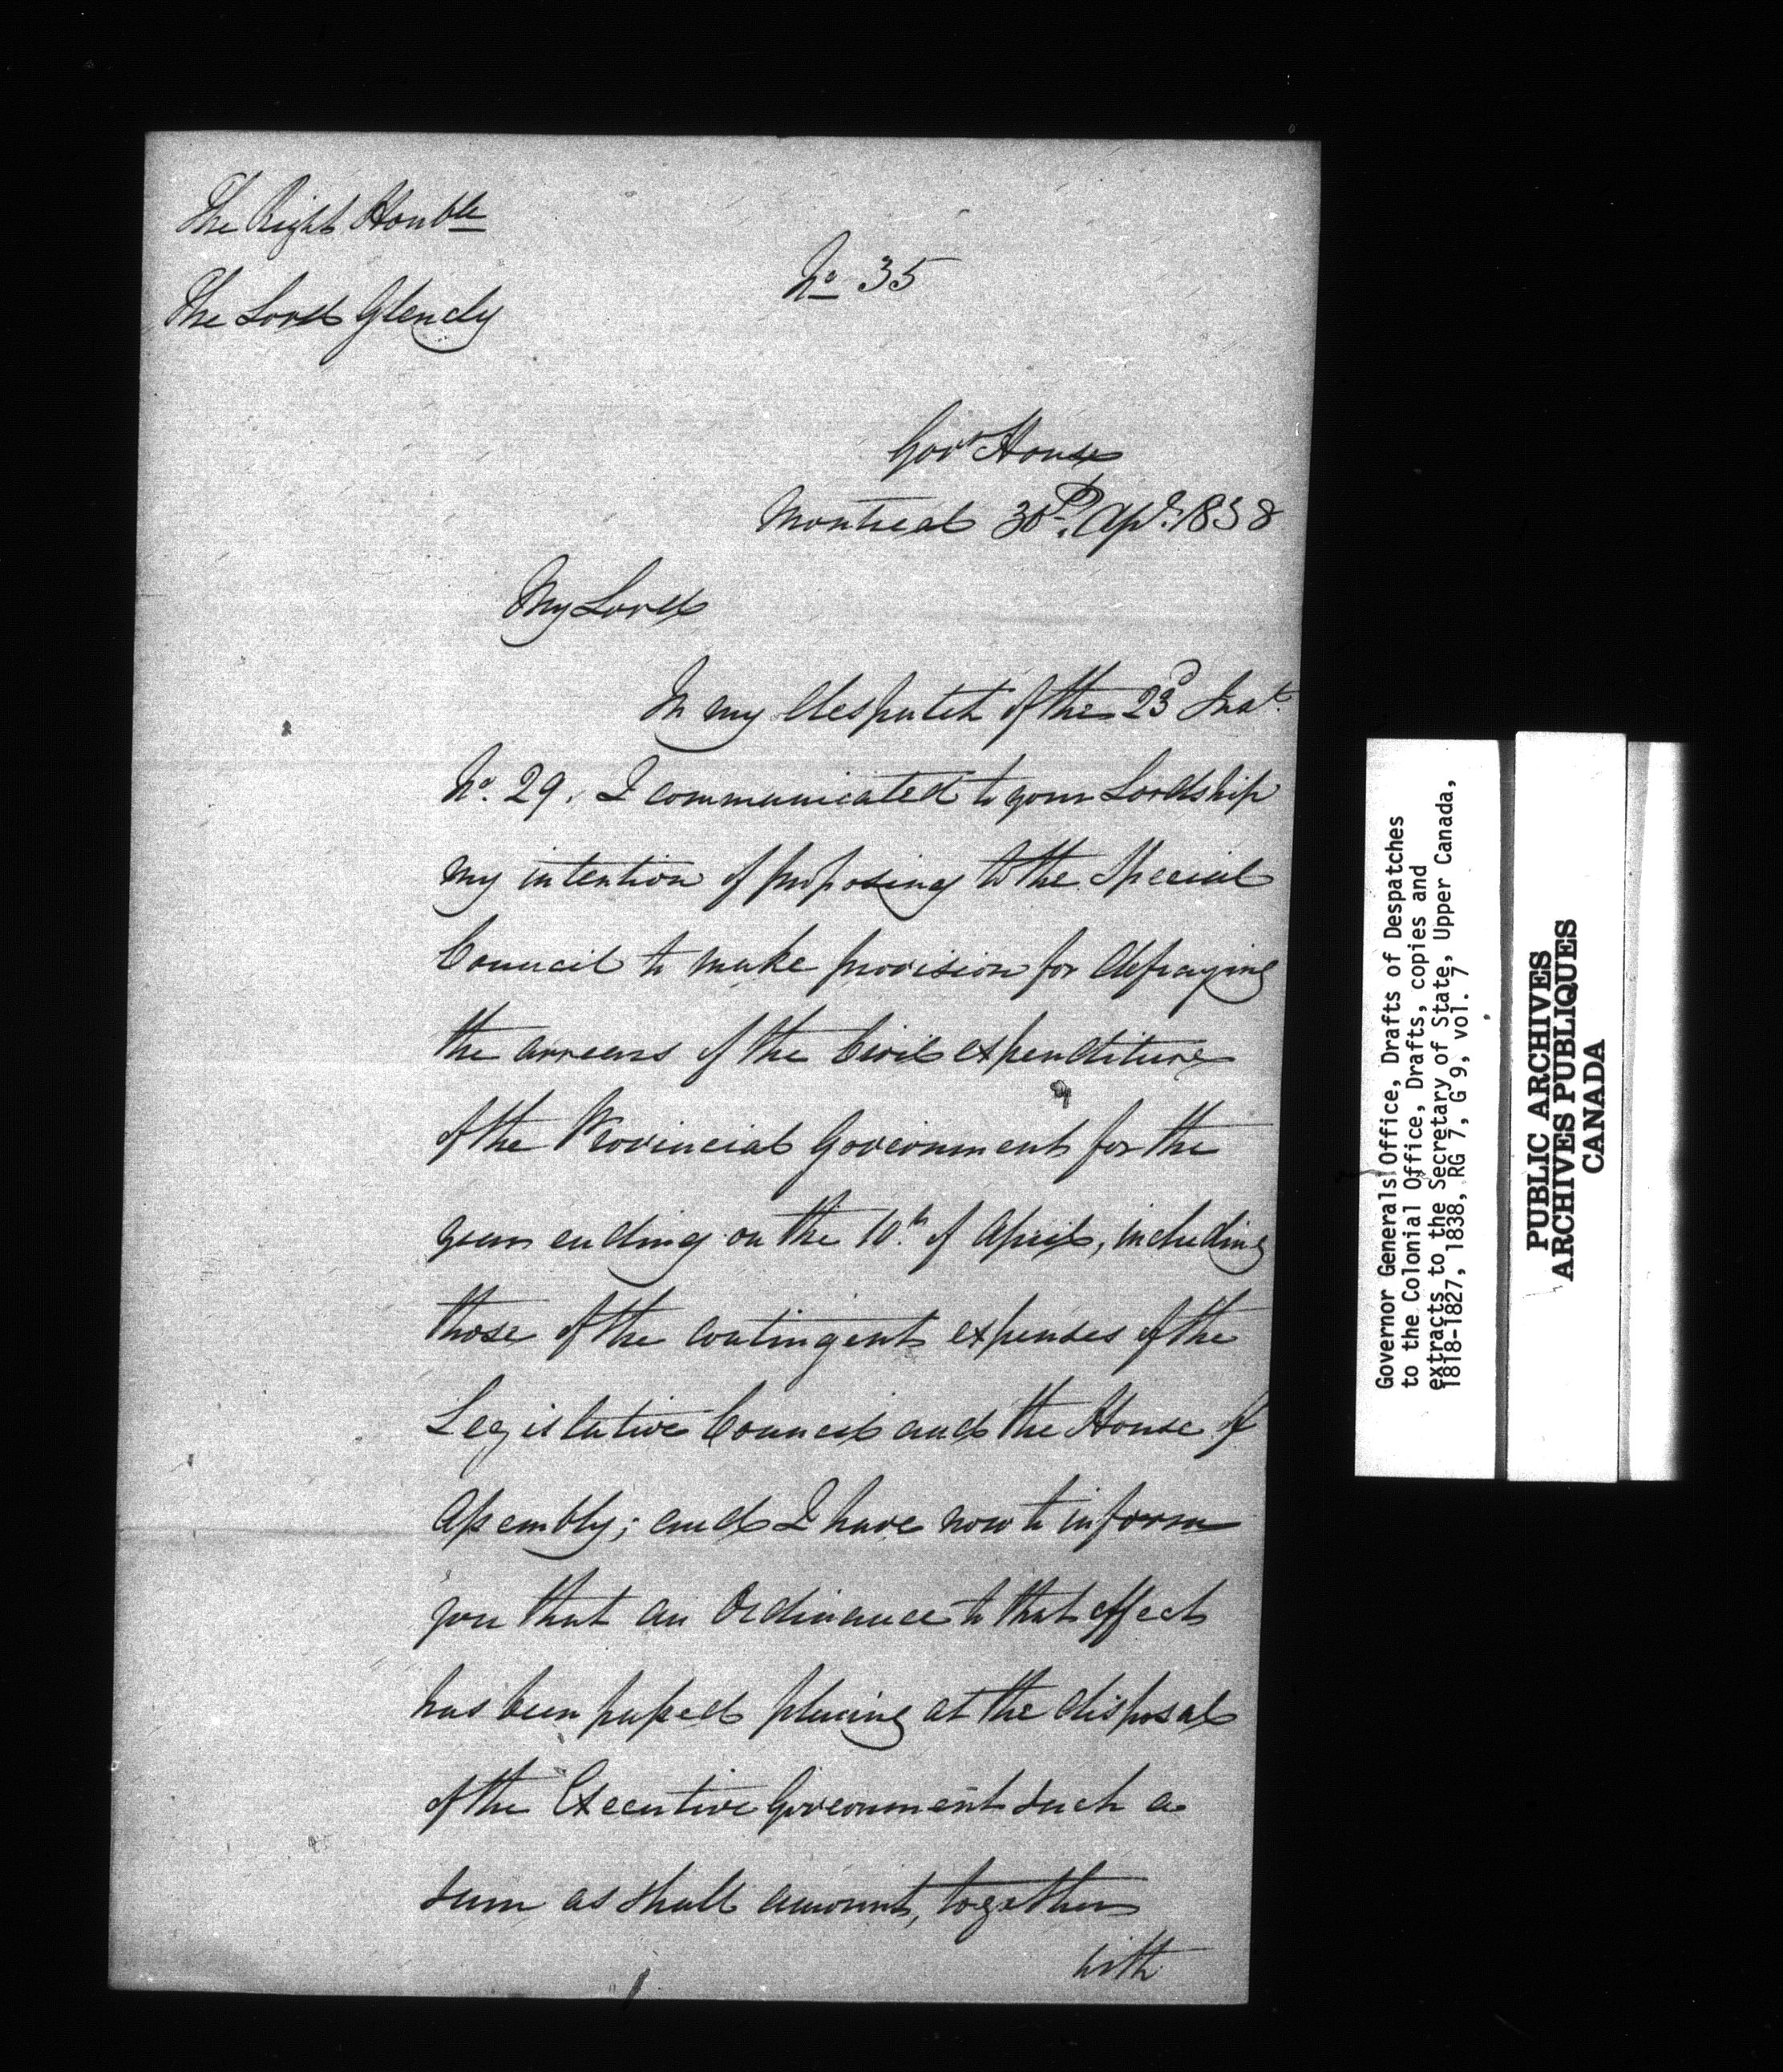 The Right Honble
The Lord Glenely
No 35
Govt House
Montreal 30th Apl: 1838
My Lord
In my despatch of the 23d Inst.
No. 29. I communicated to your Lordship
my intention of proposing to the Special
Council to make provision for defraying
the arrears of the Civil expenditure
of the Provincial Government for the
year ending on the 10th of April, including
those of the contingent expenses of the
Legislative Council and the House of
Assembly; and I have now to inform
you that an Ordinance to that effect
has been passed placing at the disposal
of the Executive Government such a
sum as shall amount, together
with
Governor General's Office, Drafts of Despatches
to the Colonial Office, Drafts, copies and
extracts to the Secretary of State, Upper Canada,
1818-1827, 1838, RG 7, G 9, vol. 7
PUBLIC ARCHIVES
ARCHIVES PUBLIQUES
CANADA